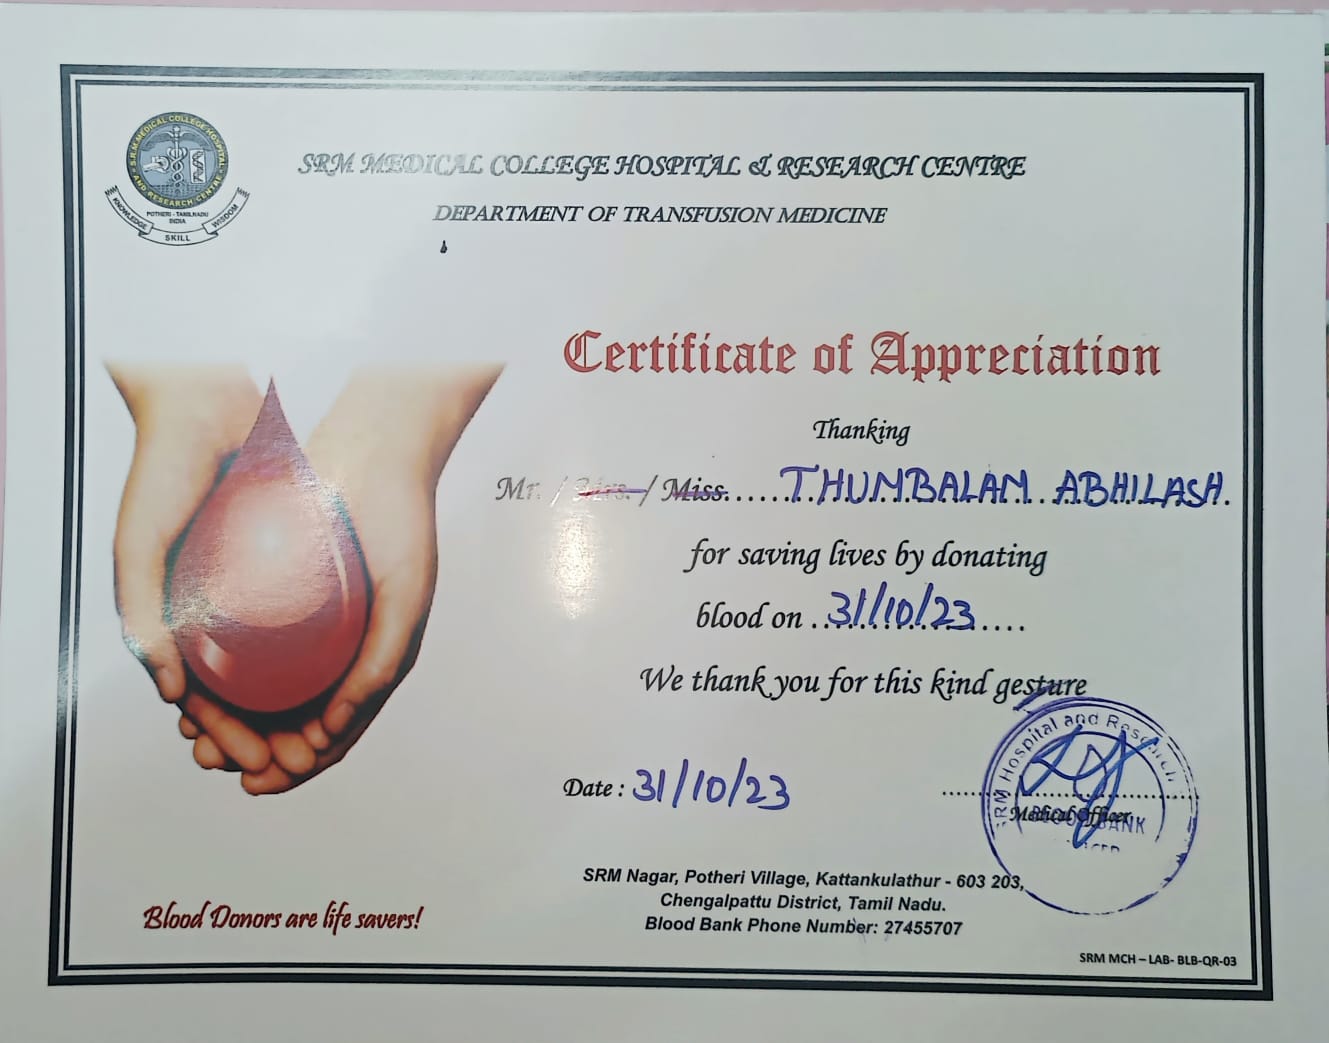 S.R.M. MEDICAL COLLEGE HOSPITAL
AND RESEARCH CENTRE
POTHERI - TAMILNADU
INDIA
KNOWLEDGE SKILL WISDOM
SRM MEDICAL COLLEGE HOSPITAL & RESEARCH CENTRE
DEPARTMENT OF TRANSFUSION MEDICINE
Certificate of Appreciation
Thanking
Mr. / Mrs. / Miss......THUMBALAM ABHILASH.
for saving lives by donating
blood on ..31/10/23....
We thank you for this kind gesture
Date : 31/10/23
SRM Hospital and Research
Medical Officer
BLOOD BANK
SRM Nagar, Potheri Village, Kattankulathur - 603 203,
Chengalpattu District, Tamil Nadu.
Blood Bank Phone Number: 27455707
Blood Donors are life savers!
SRM MCH – LAB- BLB-QR-03